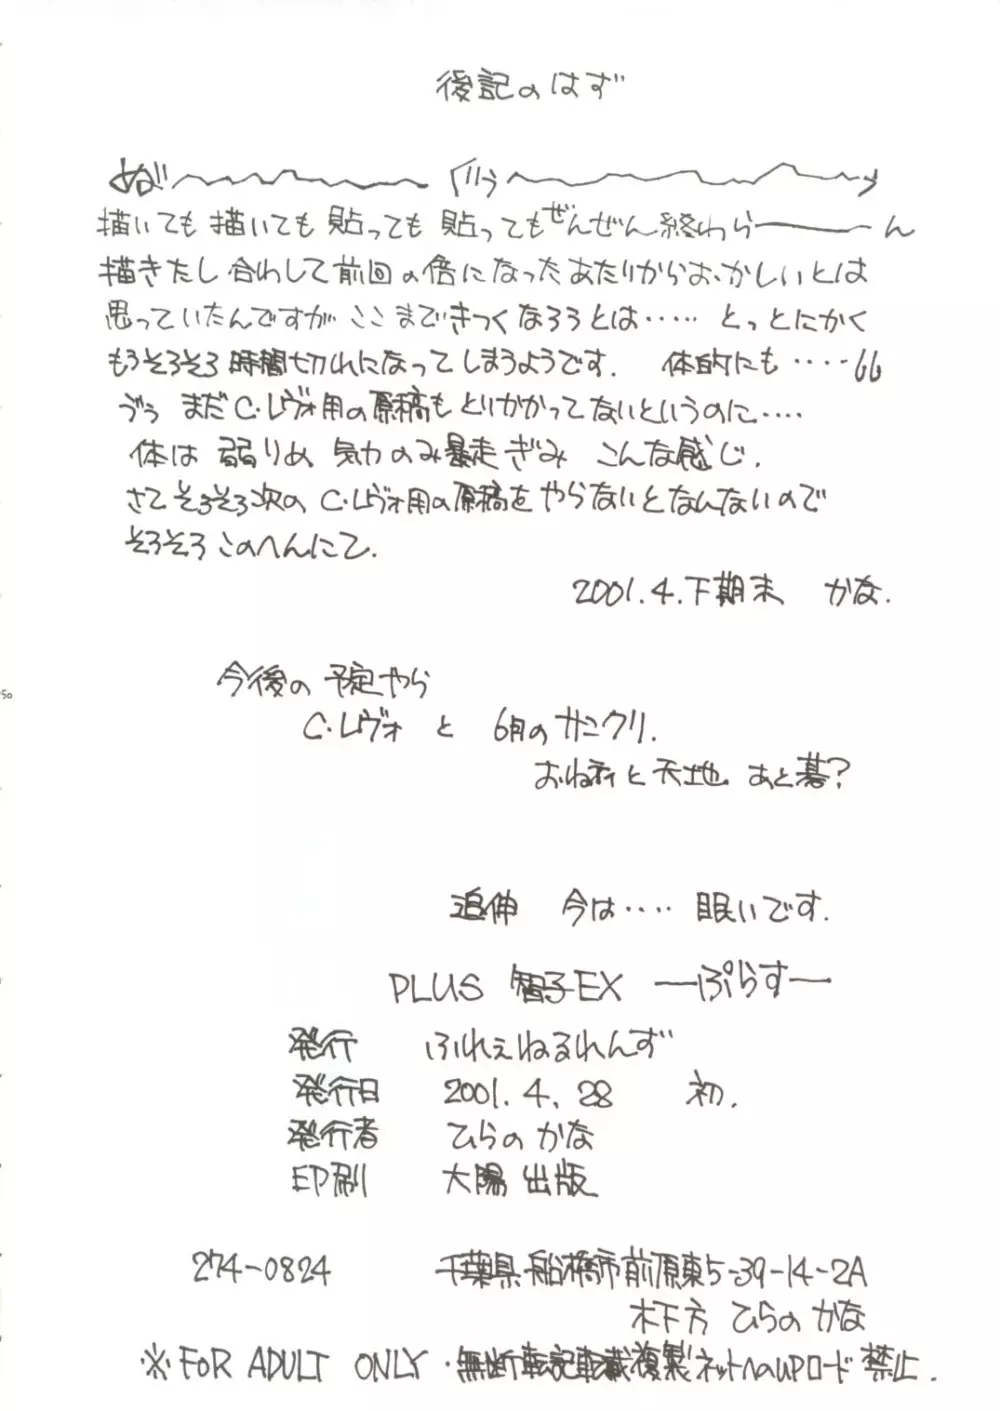 後記のはず
ぬぉ〃〜〜〜 ぐぅ〜〜〜っ
描いても描いても貼っても貼ってもぜんぜん終わら―――ん
描きたし合わして前回の倍になったあたりからおかしいとは
思っていたんですがここまできつくなろうとは…… とっとにかく
もうそろそろ時間切れになってしまうようです. 体的にも‥‥66
ゔぅ まだC.レヴォ用の原稿もとりかかってないというのに‥‥
体は弱りめ 気力のみ暴走ぎみ こんな感じ.
さてそろそろ次のC.レヴォ用の原稿をやらないとなんないので
そろそろこのへんにて.
2001.4.下期末 かな.
50
今後の予定やら
C.レヴォ と 6月のサンクリ.
おねティと天地 あと碁?
追伸 今は‥‥ 眠いです.
PLUS 智子EX ―ぷらす―
発行 ふれぇねるれんず
発行日 2001.4.28 初.
発行者 ひらの かな
印刷 大陽出版
274-0824 千葉県船橋市前原東5-39-14-2A
木下方 ひらの かな
※FOR ADULT ONLY・無断転記転載複製ネットへのUPロード禁止.